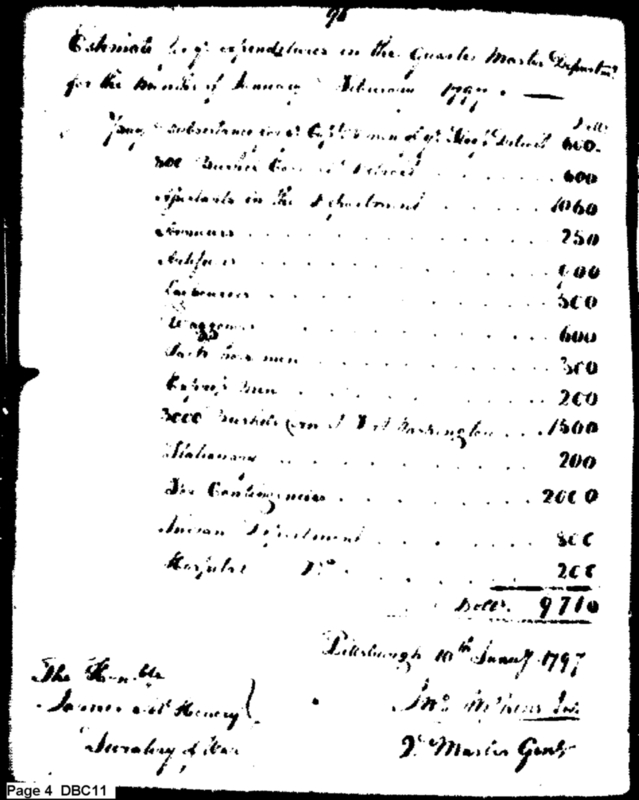 96
Estimate for ye expenditures in the Quarter Master Department
for the months of January & February 1797. —
Dolls
Pay & Subsistence for Detroit 600.
Bushels Corn Detroit 600
Assistants in the Department 1060
Armourers 250
Artificers
Labourers 500
Waggoners 600
Pack horse men 300
Express Men 200
3000 Bushels Corn Ft Washington 1500
Stationary 200
For Contingencies 2000
Indian Department 800
Hospital Do 200
Dolls. 9710
Pittsburgh 10th Jany 1797
The Honble
James McHenry
Secretary of War
Jno Wilkins Jur
Qr Master Genl
Page 4 DBC11